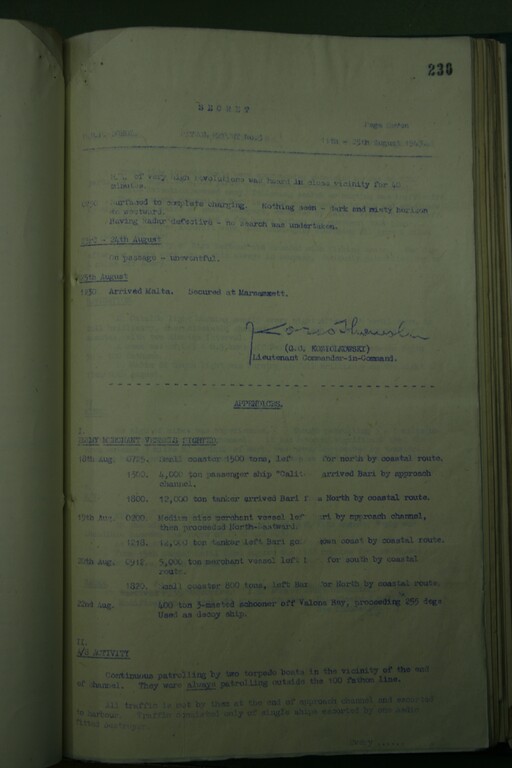 236
SECRET
August
H.E. of very high revolutions was heard in close vicinity for 40
minutes.
Surfaced to complete charging. Nothing seen - dark and misty horizon
to westward.
Having Radar defective - no search was undertaken.
24th August
On passage - uneventful.
25th August
Arrived Malta. Secured at Marsamxett.
Lieutenant Commander-in-Command.
APPENDICES.
I.
ENEMY MERCHANT VESSELS SIGHTED
18th Aug. 0725. Small coaster 1500 tons, left for north by coastal route.
4,000 ton passenger ship arrived Bari by approach
channel.
1800. 12,000 ton tanker arrived Bari North by coastal route.
19th Aug. 0900. Medium size merchant vessel left by approach channel,
then proceeded North-Eastward.
ton tanker left Bari coast by coastal route.
20th Aug. 3,000 ton merchant vessel left for south by coastal
route.
Small coaster 800 tons, left for North by coastal route.
22nd Aug. 400 ton 3-masted schooner off Valona Bay, proceeding 255 degs
Used as decoy ship.
II.
A/S ACTIVITY
Continuous patrolling by two torpedo boats in the vicinity of the end
of channel. They were always patrolling outside the 100 fathom line.
All traffic is met by them at the end of approach channel and escorted
to harbour. Traffic consisted only of single ships escorted by one